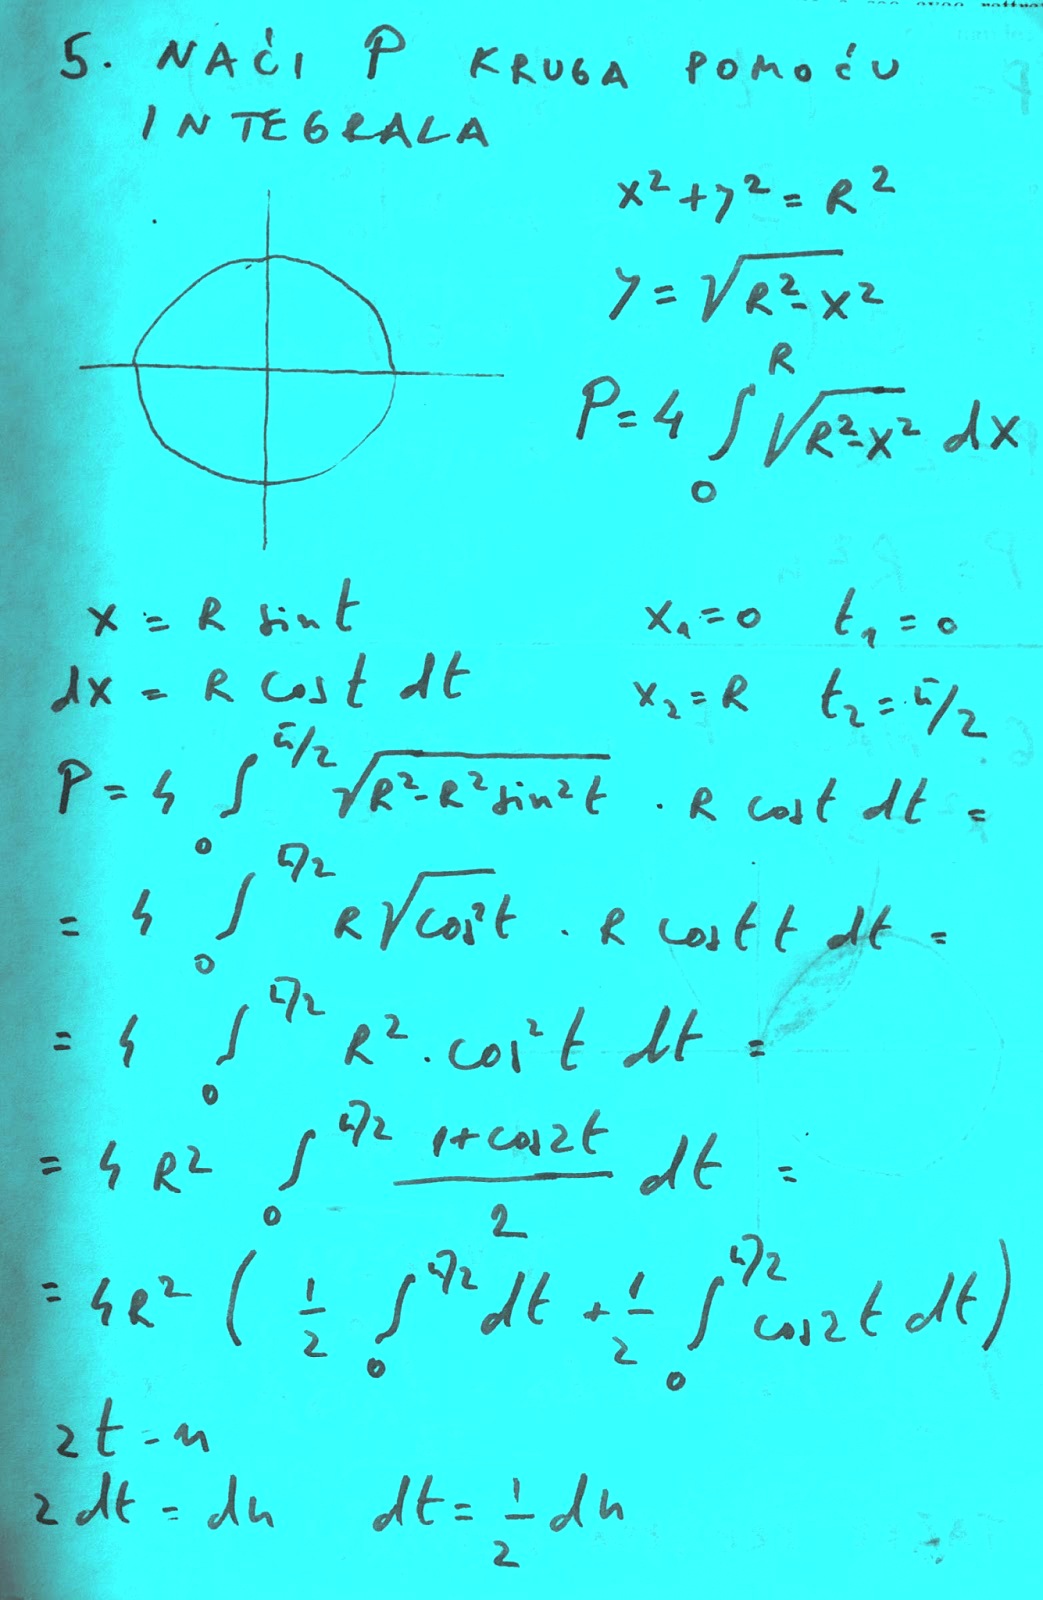 5. NAĆI P KRUGA POMOĆU
INTEGRALA
x² + y² = R²
y = √(R² - x²)
P = 4 ∫₀^R √(R² - x²) dx
x = R sin t
x₁ = 0 t₁ = 0
dx = R cos t dt
x₂ = R t₂ = π/2
P = 4 ∫₀^(π/2) √(R² - R² sin² t) · R cos t dt =
= 4 ∫₀^(π/2) R √(cos² t) · R cost t dt =
= 4 ∫₀^(π/2) R² · cos² t dt =
= 4 R² ∫₀^(π/2) (1 + cos 2t)/2 dt =
= 4R² ( 1/2 ∫₀^(π/2) dt + 1/2 ∫₀^(π/2) cos 2t dt )
2t = u
2 dt = du dt = 1/2 du